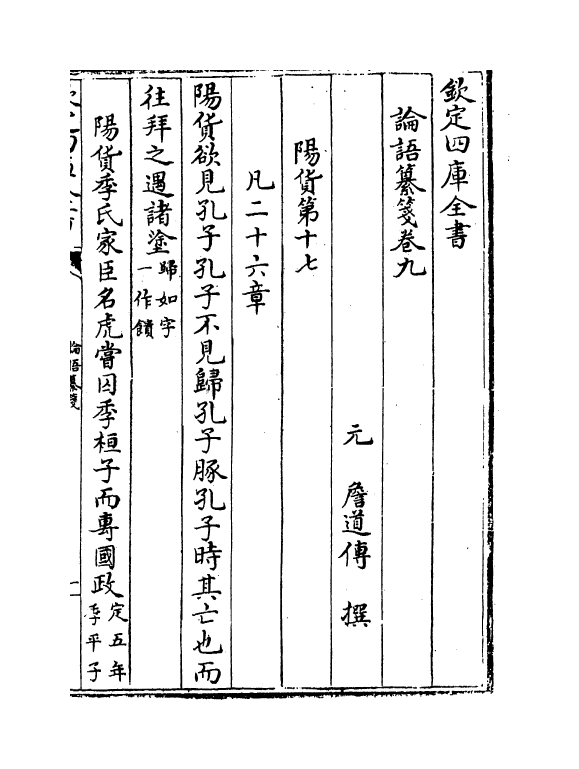 欽定四庫全書
論語纂箋卷九
元　詹道傳　撰
陽貨第十七
凡二十六章
陽貨欲見孔子孔子不見歸孔子豚孔子時其亡也而
往拜之遇諸塗歸如字一作饋
陽貨季氏家臣名虎嘗囚季桓子而專國政定五年季平子
論語纂箋